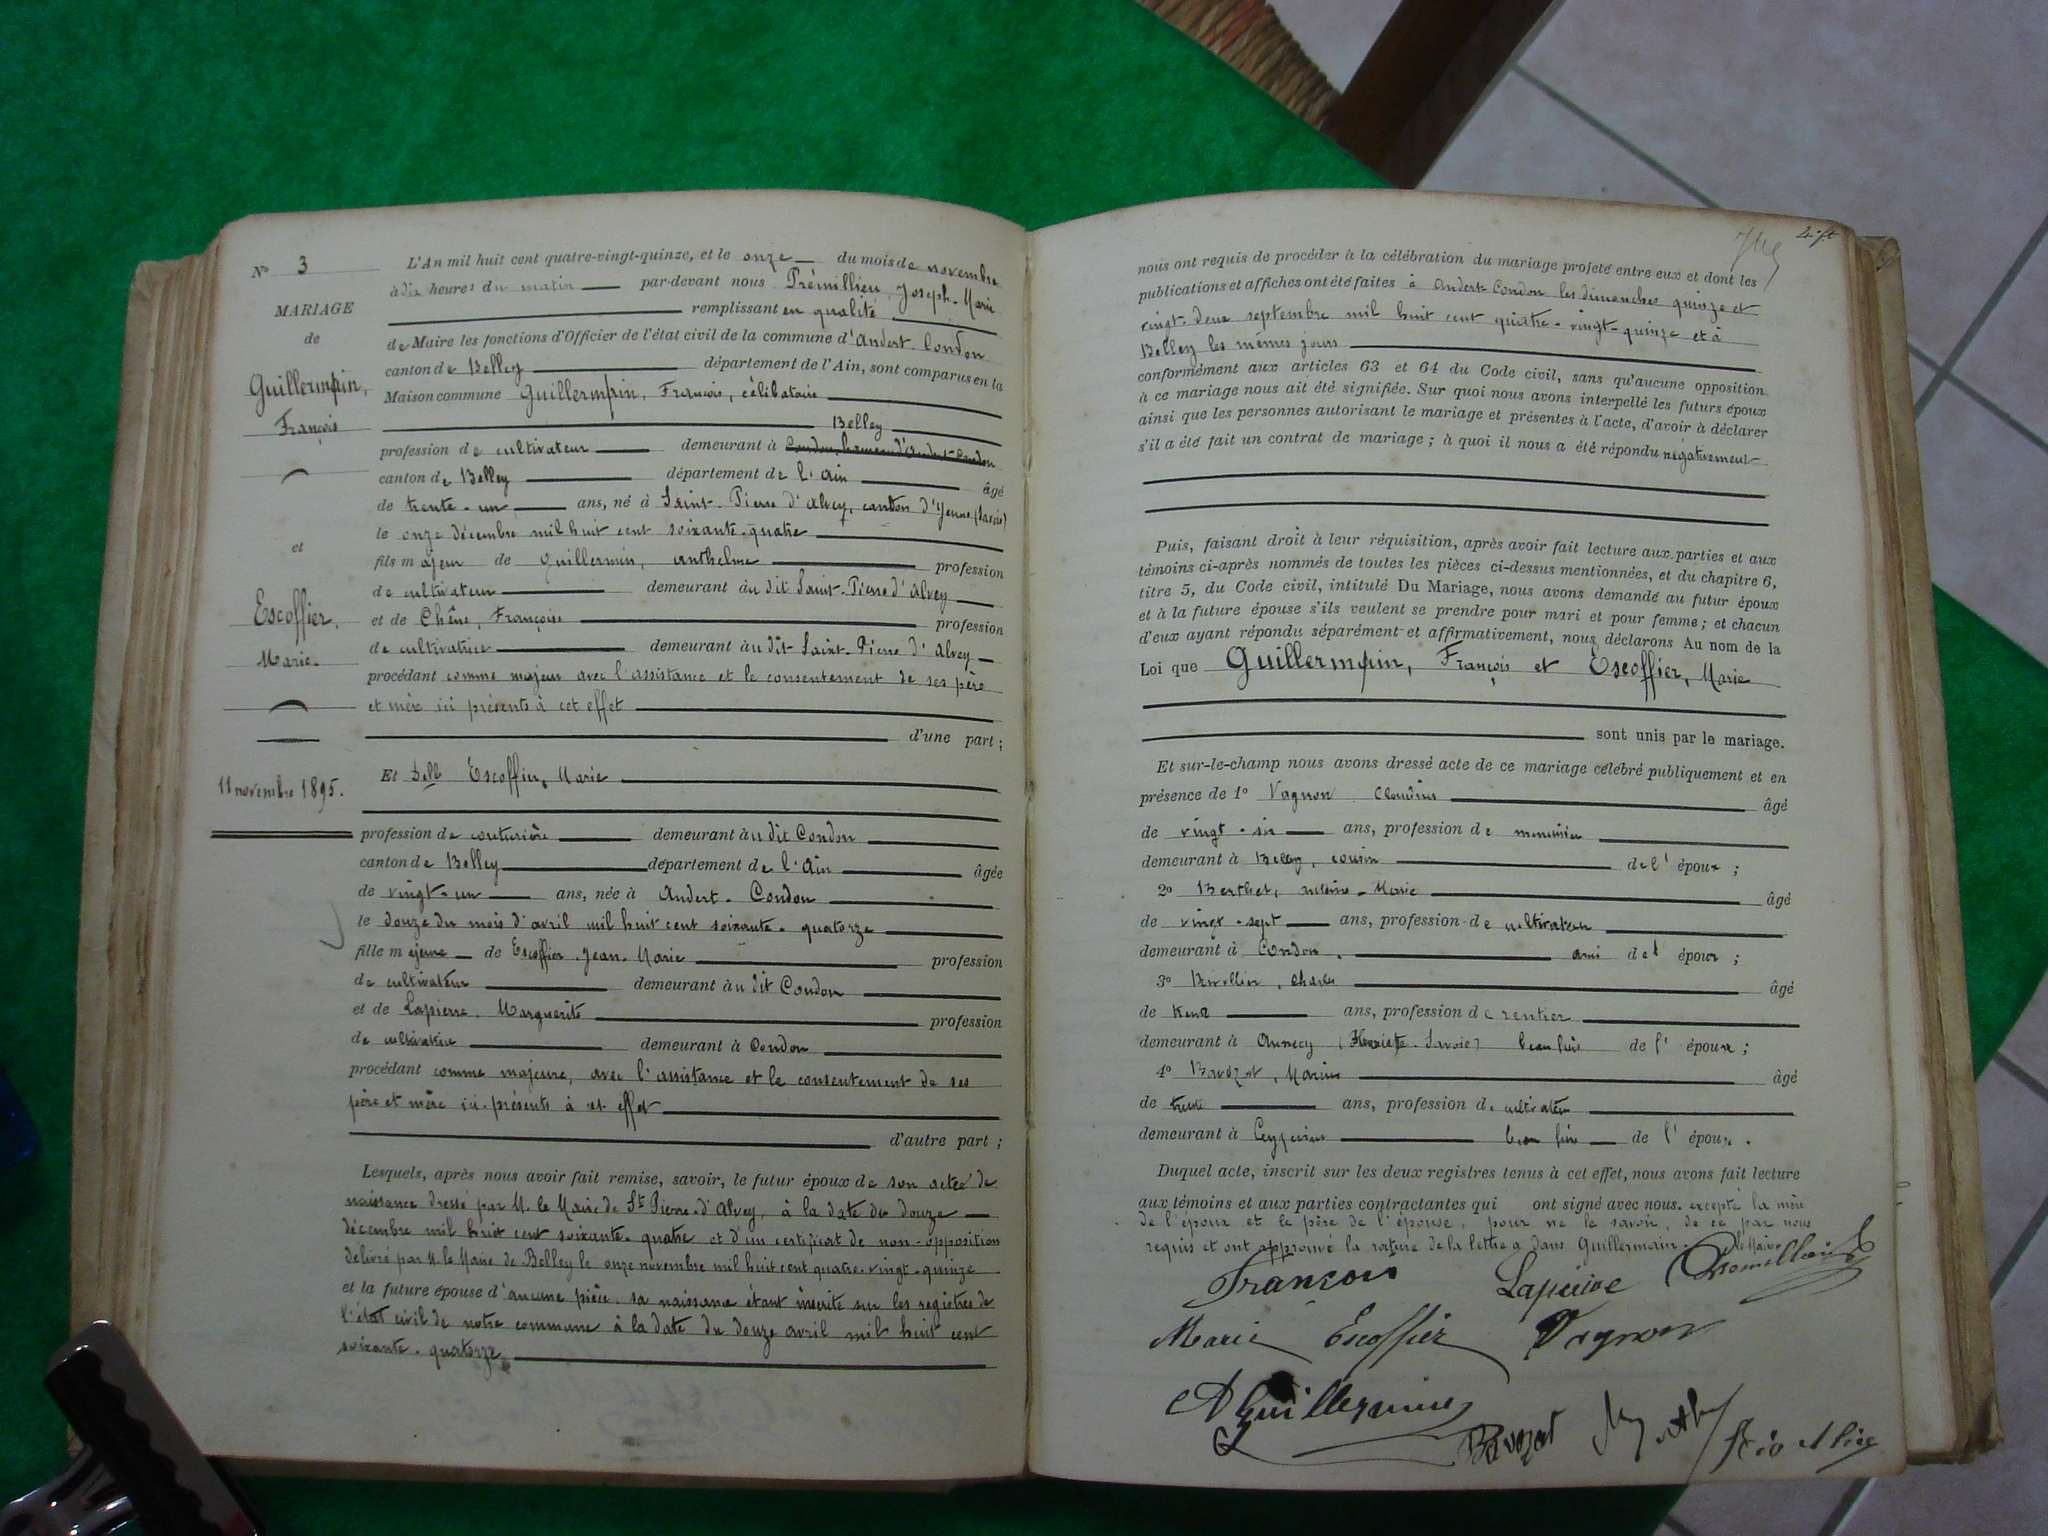 N° 3
MARIAGE
de
Guillermain,
François
et
Escoffier,
Marie.
11 novembre 1895.
L'An mil huit cent quatre-vingt-quinze, et le onze du mois de novembre
à dix heures du matin par-devant nous Prémillieu, Joseph-Marie
remplissant en qualité
de Maire les fonctions d'Officier de l'état civil de la commune d'Andert-Condon
canton de Belley département de l'Ain, sont comparus en la
Maison commune Guillermain, François, célibataire
Belley
profession de cultivateur demeurant à Condon, hameau d'Andert-Condon
canton de Belley département de l'Ain âgé
de trente-un ans, né à Saint-Pierre d'Alvey, canton d'Yenne (Savoie)
le onze décembre mil huit cent soixante-quatre
fils majeur de Guillermin, Anthelme profession
de cultivateur demeurant au dit Saint-Pierre d'Alvey
et de Chêne, Françoise profession
de cultivatrice demeurant au dit Saint-Pierre d'Alvey
procédant comme majeur avec l'assistance et le consentement de ses père
et mère ici présents à cet effet
d'une part;
Et Dell Escoffier, Marie
profession de couturière demeurant au dit Condon
canton de Belley département de l'Ain âgée
de vingt-un ans, née à Andert-Condon
le douze du mois d'avril mil huit cent soixante-quatorze
fille majeure de Escoffier Jean-Marie profession
de cultivateur demeurant au dit Condon
et de Lapierre, Marguerite profession
de cultivatrice demeurant à Condon
procédant comme majeure, avec l'assistance et le consentement de ses
père et mère ici présents à cet effet
d'autre part;
Lesquels, après nous avoir fait remise, savoir, le futur époux de son acte de
naissance dressé par M. le Maire de St Pierre-d'Alvey, à la date du douze
décembre mil huit cent soixante-quatre et d'un certificat de non-opposition
délivré par M. le Maire de Belley le onze novembre mil huit cent quatre-vingt-quinze
et la future épouse d'aucune pièce, sa naissance étant inscrite sur les registres de
l'état civil de notre commune à la date du douze avril mil huit cent
soixante-quatorze
nous ont requis de procéder à la célébration du mariage projeté entre eux et dont les
publications et affiches ont été faites à Andert-Condon les dimanches quinze et
vingt-deux septembre mil huit cent quatre-vingt-quinze et à
Belley les mêmes jours
conformément aux articles 63 et 64 du Code civil, sans qu'aucune opposition
à ce mariage nous ait été signifiée. Sur quoi nous avons interpellé les futurs époux
ainsi que les personnes autorisant le mariage et présentes à l'acte, d'avoir à déclarer
s'il a été fait un contrat de mariage; à quoi il nous a été répondu négativement
Puis, faisant droit à leur réquisition, après avoir fait lecture aux parties et aux
témoins ci-après nommés de toutes les pièces ci-dessus mentionnées, et du chapitre 6,
titre 5, du Code civil, intitulé Du Mariage, nous avons demandé au futur époux
et à la future épouse s'ils veulent se prendre pour mari et pour femme; et chacun
d'eux ayant répondu séparément et affirmativement, nous déclarons Au nom de la
Loi que Guillermain, François et Escoffier, Marie
sont unis par le mariage.
Et sur-le-champ nous avons dressé acte de ce mariage célébré publiquement et en
présence de 1° Vagnon Claudius âgé
de vingt-six ans, profession de menuisier
demeurant à Belley, cousin de l'époux;
2° Berthet, Marie âgé
de vingt-sept ans, profession de cultivateur
demeurant à Condon, ami de l'époux;
3° Charles âgé
de ans, profession de rentier
demeurant à Annecy (Haute-Savoie) beau frère de l'époux;
4° Bavozat, Marius âgé
de trente ans, profession de cultivateur
demeurant à Ceyzérieu beau frère de l'époux.
Duquel acte, inscrit sur les deux registres tenus à cet effet, nous avons fait lecture
aux témoins et aux parties contractantes qui ont signé avec nous, excepté la mère
de l'époux et le père de l'épouse, pour ne le savoir, de ce par nous
requis et ont approuvé la rature de la lettre a dans Guillermain. Le Maire
François Lapierre
Marie Escoffier Vagnon
A Guillermin
Bavozat